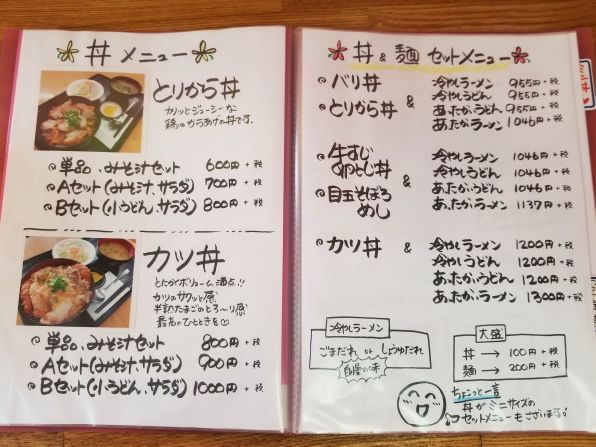 丼 メニュー
とりから丼
カリッとジューシーな
鶏のからあげの丼です.
単品、みそ汁セット 600円 + 税
Aセット(みそ汁、サラダ) 700円 + 税
Bセット(小うどん、サラダ) 800円 + 税
カツ丼
とにかくボリューム満点!!
カツのサクッと感
半熟たまごのとろ〜り感
最高のひとときを♡
単品、みそ汁セット 800円 + 税
Aセット(みそ汁、サラダ) 900円 + 税
Bセット(小うどん、サラダ) 1000円 + 税
丼 & 麺 セットメニュー
バリ丼
とりから丼
&
冷やしラーメン 955円 + 税
冷やしうどん 955円 + 税
あったかうどん 955円 + 税
あったかラーメン 1046円 + 税
牛すじ
卵とじ丼
目玉そぼろ
めし
&
冷やしラーメン 1046円 + 税
冷やしうどん 1046円 + 税
あったかうどん 1046円 + 税
あったかラーメン 1137円 + 税
カツ丼 &
冷やしラーメン 1200円 + 税
冷やしうどん 1200円 + 税
あったかうどん 1200円 + 税
あったかラーメン 1300円 + 税
冷やしラーメン
ごまだれ or しょうゆだれ
自慢の味
大盛
丼 → 100円 + 税
麺 → 200円 + 税
ちょこっと一言
丼がミニサイズの
セットメニューもございます♪